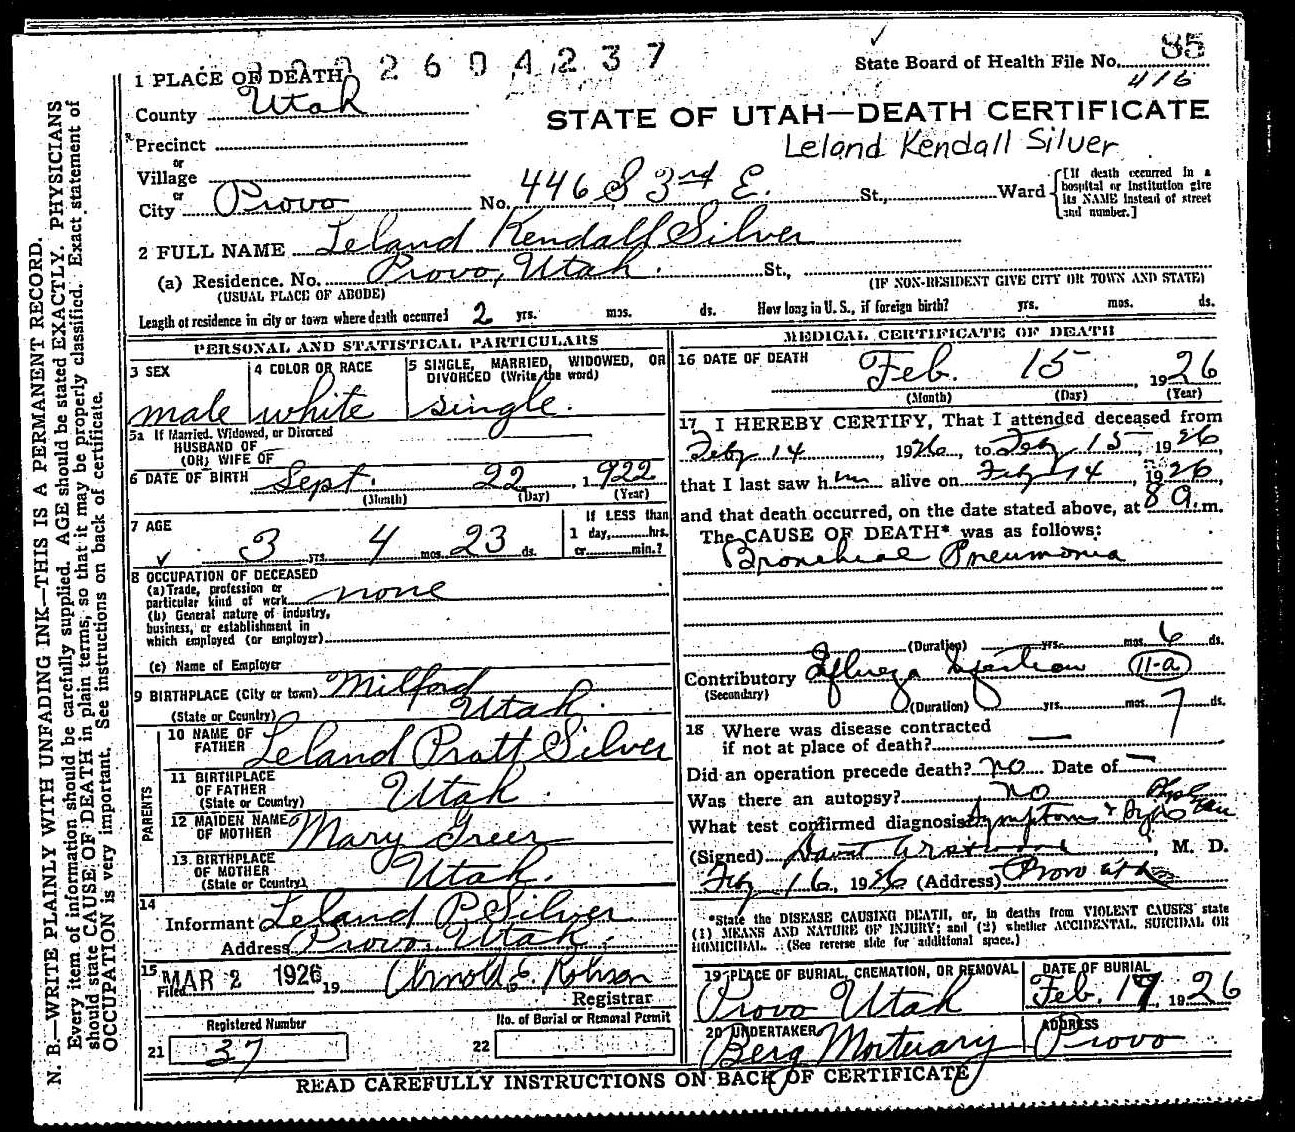 2604237
State Board of Health File No. 85
416
1 PLACE OF DEATH
County Utah
STATE OF UTAH—DEATH CERTIFICATE
Precinct
Leland Kendall Silver
or
Village
or
City Provo No. 446 S 3rd E. St., Ward
[If death occurred in a hospital or institution give its NAME instead of street and number.]
2 FULL NAME Leland Kendall Silver
(a) Residence. No. Provo, Utah. St.,
(USUAL PLACE OF ABODE) (IF NON-RESIDENT GIVE CITY OR TOWN AND STATE)
Length of residence in city or town where death occurred 2 yrs. mos. ds. How long in U. S., if foreign birth? yrs. mos. ds.
PERSONAL AND STATISTICAL PARTICULARS
3 SEX 4 COLOR OR RACE 5 SINGLE, MARRIED, WIDOWED, OR
DIVORCED (Write the word)
male white single.
5a If Married, Widowed, or Divorced
HUSBAND OF
(OR) WIFE OF
6 DATE OF BIRTH Sept. 22, 1922
(Month) (Day) (Year)
7 AGE If LESS than
3 yrs. 4 mos. 23 ds. 1 day, hrs.
or min.?
8 OCCUPATION OF DECEASED
(a) Trade, profession or
particular kind of work none
(b) General nature of industry,
business, or establishment in
which employed (or employer)
(c) Name of Employer
9 BIRTHPLACE (City or town) Milford
(State or Country) Utah.
PARENTS
10 NAME OF
FATHER Leland Pratt Silver
11 BIRTHPLACE
OF FATHER
(State or Country) Utah.
12 MAIDEN NAME
OF MOTHER Mary Greer
13 BIRTHPLACE
OF MOTHER
(State or Country) Utah.
14
Informant Leland P. Silver
Address Provo, Utah.
15
Filed MAR 2 1926 19 Arnold E. Robison
Registrar
Registered Number No. of Burial or Removal Permit
21 37 22
MEDICAL CERTIFICATE OF DEATH
16 DATE OF DEATH
Feb. 15, 1926
(Month) (Day) (Year)
17 I HEREBY CERTIFY, That I attended deceased from
Feby 14 1926, to Feby 15 1926,
that I last saw him alive on Feby 14, 1926,
and that death occurred, on the date stated above, at 8 a.m.
The CAUSE OF DEATH* was as follows:
Bronchial Pneumonia
(Duration) yrs. mos. 6 ds.
Contributory 11-a
(Secondary)
(Duration) yrs. mos. 7 ds.
18 Where was disease contracted
if not at place of death? —
Did an operation precede death? no Date of —
Was there an autopsy? no
What test confirmed diagnosis? Symptoms &
(Signed) M. D.
Feby 16, 1926 (Address) Provo Utah
*State the DISEASE CAUSING DEATH, or, in deaths from VIOLENT CAUSES state
(1) MEANS AND NATURE OF INJURY; and (2) whether ACCIDENTAL, SUICIDAL OR
HOMICIDAL. (See reverse side for additional space.)
19 PLACE OF BURIAL, CREMATION, OR REMOVAL DATE OF BURIAL
Provo Utah Feb. 17, 1926
20 UNDERTAKER ADDRESS
Berg Mortuary Provo
READ CAREFULLY INSTRUCTIONS ON BACK OF CERTIFICATE
N. B.—WRITE PLAINLY WITH UNFADING INK—THIS IS A PERMANENT RECORD.
Every item of information should be carefully supplied. AGE should be stated EXACTLY. PHYSICIANS
should state CAUSE OF DEATH in plain terms, so that it may be properly classified. Exact statement of
OCCUPATION is very important. See instructions on back of certificate.